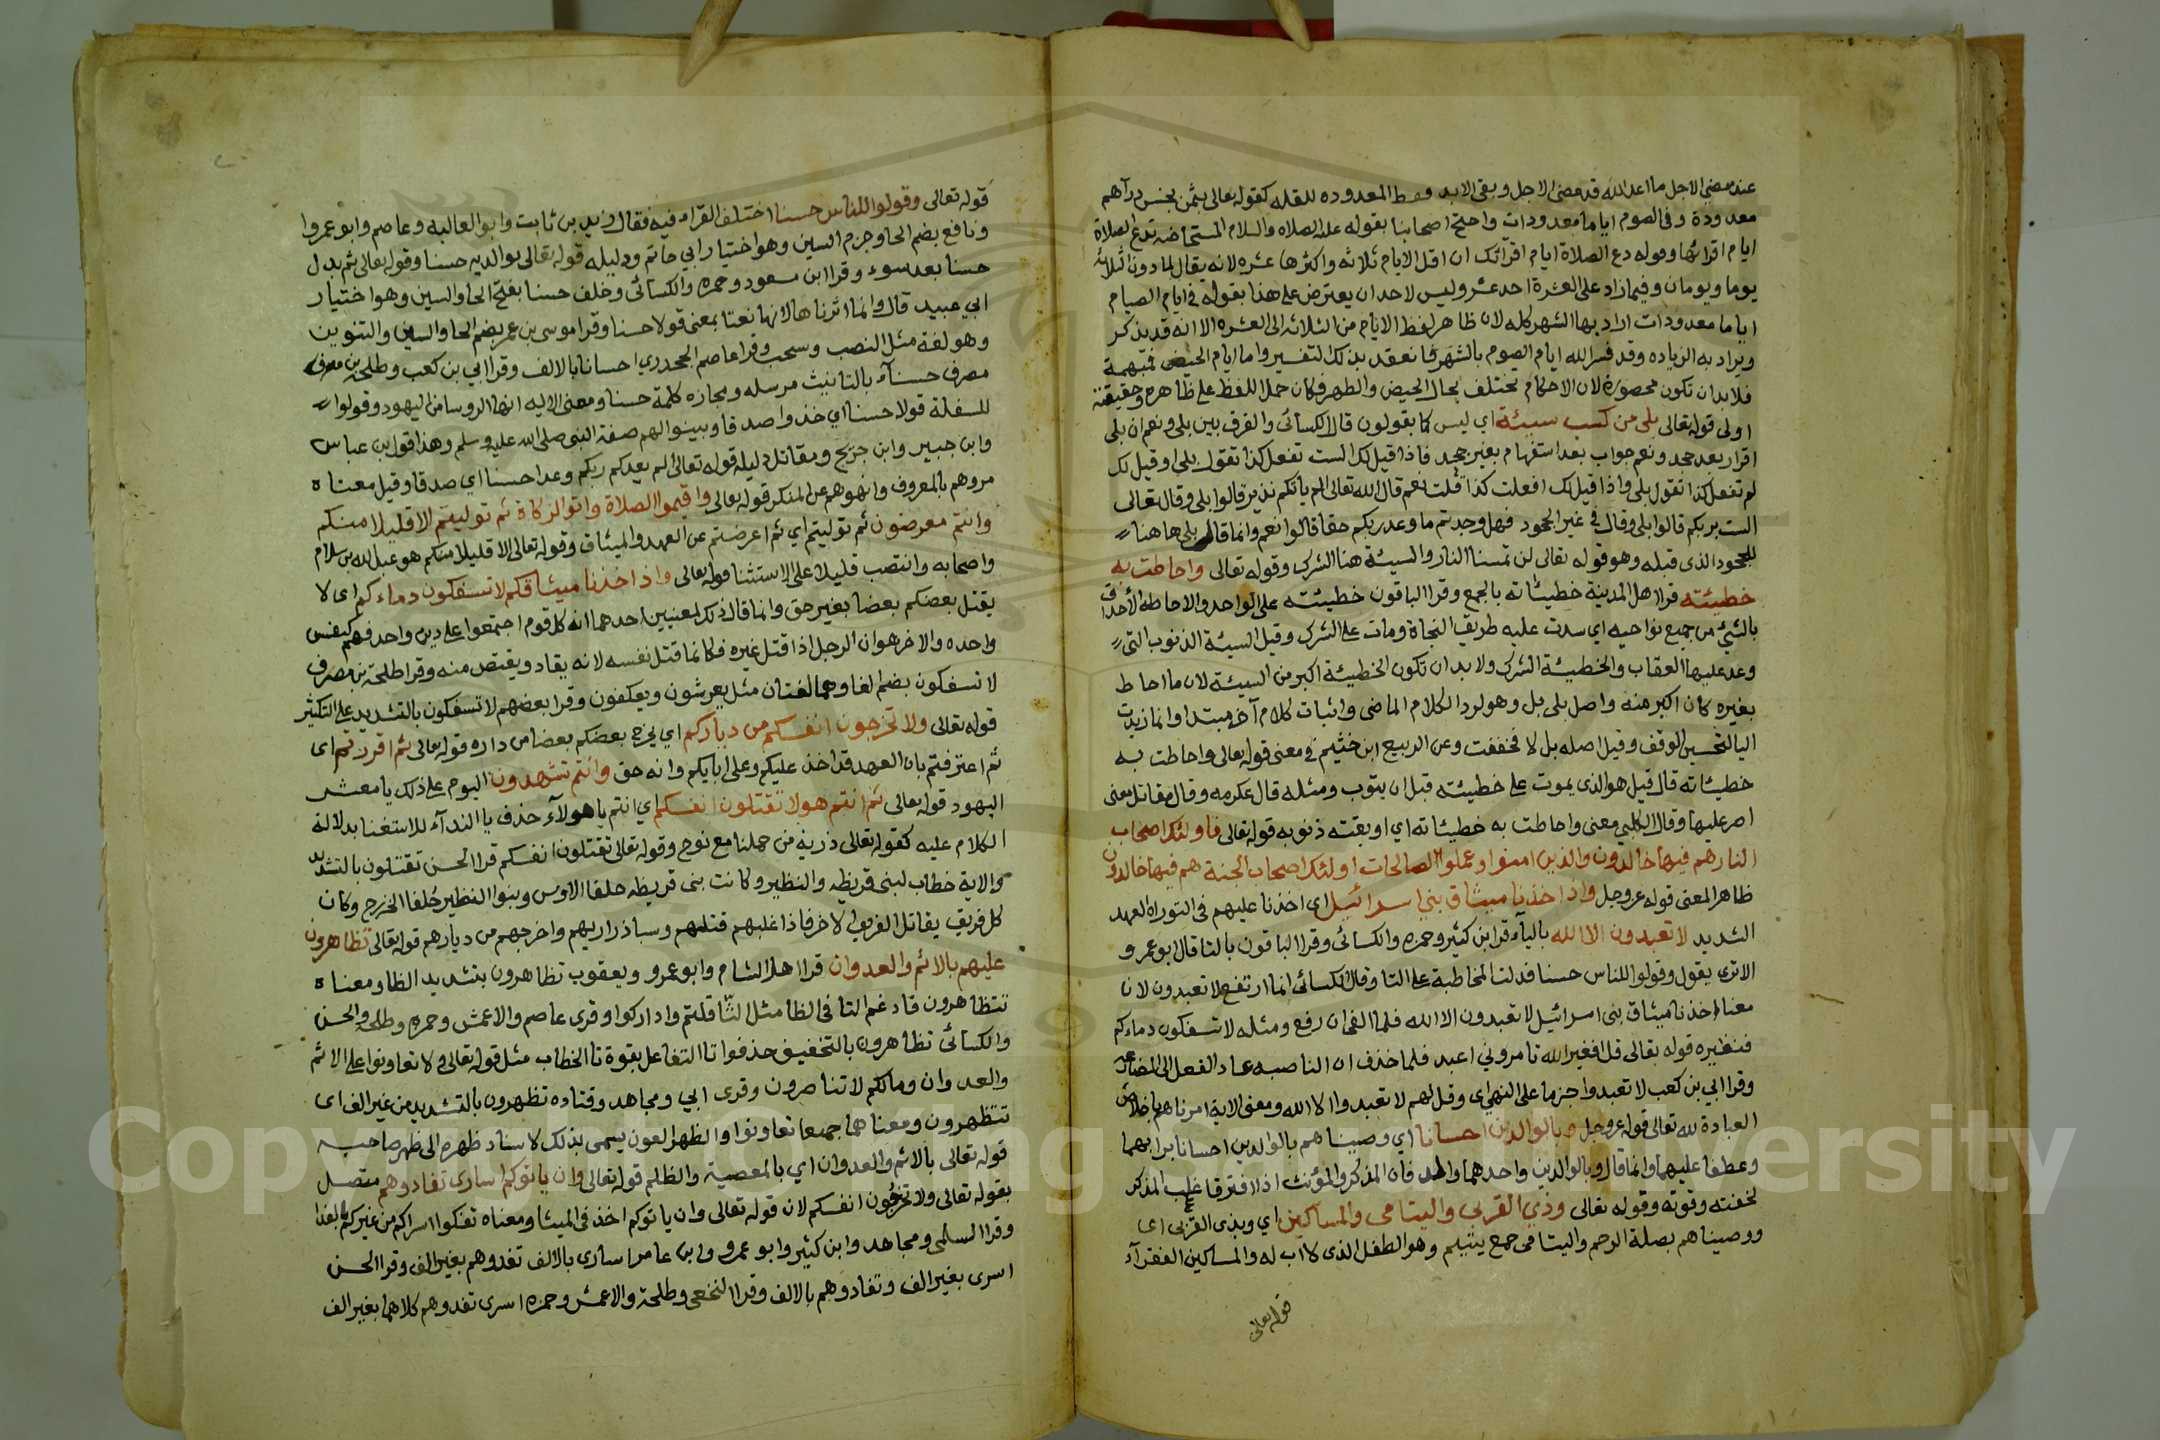 عند مضي الاجل ما اعد الله قد مضى الاجل وبقي الابد ولفظ المعدوده للقله كقوله تعالى بثمن بخس دراهم
معدودة وفي الصوم اياما معدودات واحتج اصحابنا بقوله عليه الصلاه والسلام المستحاضه تدع الصلاة
ايام اقرائها وقوله دع الصلاة ايام اقرآئك ان اقل الايام ثلاثه واكثرها عشره لانه يقال لما دون الثلاثه
يوما ويومان وفيما زاد على العشرة احد عشر وليس لاحد ان يعترض على هذا بقوله في ايام الصيام
اياما معدودات اراد بها الشهر كله لان ظاهر لفظ الايام من الثلاثه الى العشره الا انه قد يذكر
ويراد به الزياده وقد فسر الله ايام الصوم بالشهر فانعقد بذلك التفسير واما ايام الحيض فمبهمة
فلا بد ان تكون محصورة لان الاحكام تختلف بحال الحيض والطهر فكان حمل اللفظ على ظاهره وحقيقته
اولى قوله تعالى بلى من كسب سيئة اي ليس كما يقولون قال الكسائي والفرق بين بلى ونعم ان بلى
اقرار بعد جحد ونعم جواب بعد استفهام بغير جحد فاذا قيل لك الست تفعل كذا تقول بلى او قيل لك
لم تفعل كذا تقول بلى واذا قيل لك افعلت كذا قلت نعم قال الله تعالى الم ياتكم نذير قالوا بلى وقال تعالى
الست بربكم قالوا بلى وقال في غير الجحود فهل وجدتم ما وعد ربكم حقا قالوا نعم وانما قال بلى هاهنا
للجحود الذى قبله وهو قوله تعالى لن تمسنا النار والسيئة هنا الشرك وقوله تعالى واحاطت به
خطيئته قرا اهل المدينة خطيئاته بالجمع وقرا الباقون خطيئته على الواحد والاحاطه الأحداق
بالشيئ من جميع نواحيه اي سدت عليه طريق النجاة ومات على الشرك وقيل السيئة الذنوب التي
وعد عليها العقاب والخطيئة الشرك ولا بد ان تكون الخطيئة اكبر من السيئة لان ما احاط
بغيره كان اكبر منه واصل بلى بل وهو لرد الكلام الماضي واثبات كلام آخر مبتدا وانما زيدت
اليا لتحسين الوقف وقيل اصله بل لا فخففت وعن الربيع ابن خثيم في معنى قوله تعالى واحاطت به
خطيئاته قال قيل هو الذى يموت على خطيئته قبل ان يتوب ومثله قال عكرمه وقال مقاتل يعنى
اصر عليها وقال الكلبي معنى واحاطت به خطيئاته اي اوبقته ذنوبه قوله تعالى فاولئك اصحاب
النار هم فيها خالدون والذين امنوا وعملوا الصالحات اولئك اصحاب الجنة هم فيها خالدون
ظاهر المعنى قوله عز وجل واذ اخذنا ميثاق بني اسرائيل اى اخذنا عليهم في التوراه العهد
الشديد لا تعبدون الا الله باليآء قرا ابن كثير وحمزه والكسائي وقرا الباقون بالتا قال ابو عمرو
الا ترى يقول وقولوا للناس حسنا فدلت المخاطبة على التا وقال الكسائي انما ارتفع لا تعبدون لان
معناه اخذنا ميثاق بني اسرائيل لا تعبدون الا الله فلما القى ان رفع ومثله لا تسفكون دماءكم
فنظيره قوله تعالى قل افغير الله تامروني اعبد فلما حذف ان الناصبه عاد الفعل الى المضارعه
وقرا ابي بن كعب لا تعبدوا جزما على النهي اى وقل لهم لا تعبدوا الا الله ومعنى الاية امرناهم باخلاص
العبادة لله تعالى قوله عز وجل وبالوالدين احسانا اي وصيناهم بالوالدين احسانا برا بهما
وعطفا عليهما وانما قال وبالوالدين واحدهما والد فان المذكر والمؤنث اذا افترقا غلب المذكر
لخفته وقوته وقوله تعالى وذي القربى واليتامى والمساكين اي وبذى القربى اى
ووصيناهم بصلة الرحم واليتامى جمع يتيم وهو الطفل الذى لا اب له والمساكين الفقرآء
قوله تعالى
قوله تعالى وقولوا للناس حسنا اختلف القراء فيه فقال زيد بن ثابت وابو العاليه وعاصم وابو عمرو
ونافع بضم الحا وجزم السين وهو اختيار ابي حاتم ودليله قوله تعالى بوالديه حسنا وقوله تعالى ثم بدل
حسنا بعد سوء وقرا ابن مسعود وحمزه والكسائي وخلف حسنا بفتح الحا والسين وهو اختيار
ابي عبيد قال وانما اثرناها لانها نعتا بمعنى قولا حسنا وقرا موسى بن عمر بضم الحا والسين والتنوين
وهو لغة مثل النصب وسحب وقرا عاصم الجحدري احسانا بالالف وقرا ابي بن كعب وطلحة بن مصرف
مصرف حسنآء بالتانيث مرسله ومجازه كلمة حسنا ومعنى الايه انها الروسا من اليهود وقولوا
للسفلة قولا حسنا اي خذوا صدقا وبينوا لهم صفة النبي صلى الله عليه وسلم وهذا قول ابن عباس
وابن جبير وابن جريج ومقاتل دليله قوله تعالى الم يعدكم ربكم وعدا حسنا اي صدقا وقيل معناه
مروهم بالمعروف وانهوهم عن المنكر قوله تعالى واقيموا الصلاة واتوا الزكاة ثم توليتم الا قليلا منكم
وانتم معرضون ثم توليتم اي ثم اعرضتم عن العهد والميثاق وقوله تعالى الا قليلا منكم هو عبد الله بن سلام
واصحابه وانتصب قليلا على الاستثنا قوله تعالى واذ اخذنا ميثاقكم لا تسفكون دماءكم اى لا
يقتل بعضكم بعضا بغير حق وانما قال ذلك لمعنيين احدهما انه كل قوم اجتمعوا على دين واحد فهم كنفس
واحده والاخر هو ان الرجل اذا قتل غيره فكانما قتل نفسه لانه يقاد ويقتص منه وقرا طلحة بن مصرف
لا تسفكون بضم الفا وهما لغتان مثل يعرشون ويعكفون وقرا بعضهم لا تسفكون بالتشديد على التكثير
قوله تعالى ولا تخرجون انفسكم من دياركم اي لا يخرج بعضكم بعضا من داره قوله تعالى ثم اقررتم اى
ثم اعترفتم بان العهد قد اخذ عليكم وعلى ابايكم وانه حق وانتم تشهدون اليوم على ذلك يا معشر
اليهود قوله تعالى ثم انتم هولا تقتلون انفسكم اي انتم يا هولآء حذف يا الندآء للاستغنا بدلالة
الكلام عليه كقوله تعالى ذرية من حملنا مع نوح وقوله تعالى تقتلون انفسكم قرا الحسن تقتلون بالتشديد
والاية خطاب لبني قريظه والنظير وكانت بني قريظه حلفا الاوس وبنوا النظير حلفا الخزرج وكان
كل فريق يقاتل الفريق الاخر فاذا غلبهم قتلهم وسبا ذراريهم واخرجهم من ديارهم قوله تعالى تظاهرون
عليهم بالاثم والعدوان قرا اهل الشام وابو عمرو ويعقوب تظاهرون بتشديد الظا ومعناه
تتظاهرون فادغم التا في الظا مثل اثاقلتم واداركوا وقرى عاصم والاعمش وحمزه وطلحه والحسن
والكسائي تظاهرون بالتخفيف حذفوا تا التفاعل بقوة تا الخطاب مثل قوله تعالى ولا تعاونوا على الاثم
والعدوان ومالكم لا تناصرون وقرى ابي ومجاهد وقتاده تظهرون بالتشديد من غير الف اى
تتظهرون ومعناهما جميعا تعاونوا والظهر العون يسمى بذلك لاسناد ظهره الى ظهر صاحبه
قوله تعالى بالاثم والعدوان اي بالمعصية والظلم قوله تعالى وان ياتوكم اسارى تفادوهم متصل
بقوله تعالى ولا تخرجون انفسكم لان قوله تعالى وان ياتوكم اخذ في الميثا ومعناه تفكوا اسراكم من غيركم بالفدا
وقرا السلمى ومجاهد وابن كثير وابو عمرو وابن عامر اسارى بالالف تفدوهم بغير الف وقرا الحسن
اسرى بغير الف وتفادوهم بالالف وقرا النخعي وطلحة والاعمش وحمزه اسرى تفدوهم كلاهما بغير الف
Copy ng versity